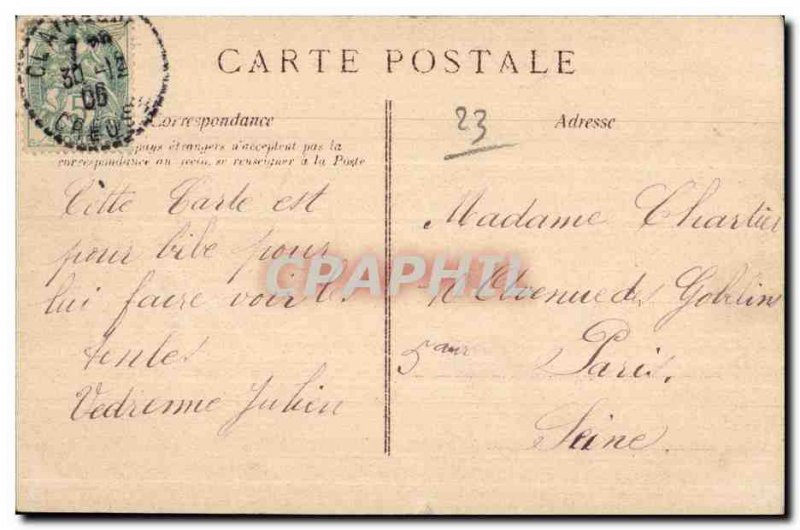 CARTE POSTALE
30 -11
06
CREUSE
Correspondance
pays étrangers n'acceptent pas la
correspondance au recto, se renseigner à la Poste
Cette Carte est
pour bibe pour
lui faire voir les
tentes
Vedrenne Julien
23
Adresse
Madame Chartier
Avenue des Gobelins
5
Paris.
Seine.
CPAPHIL